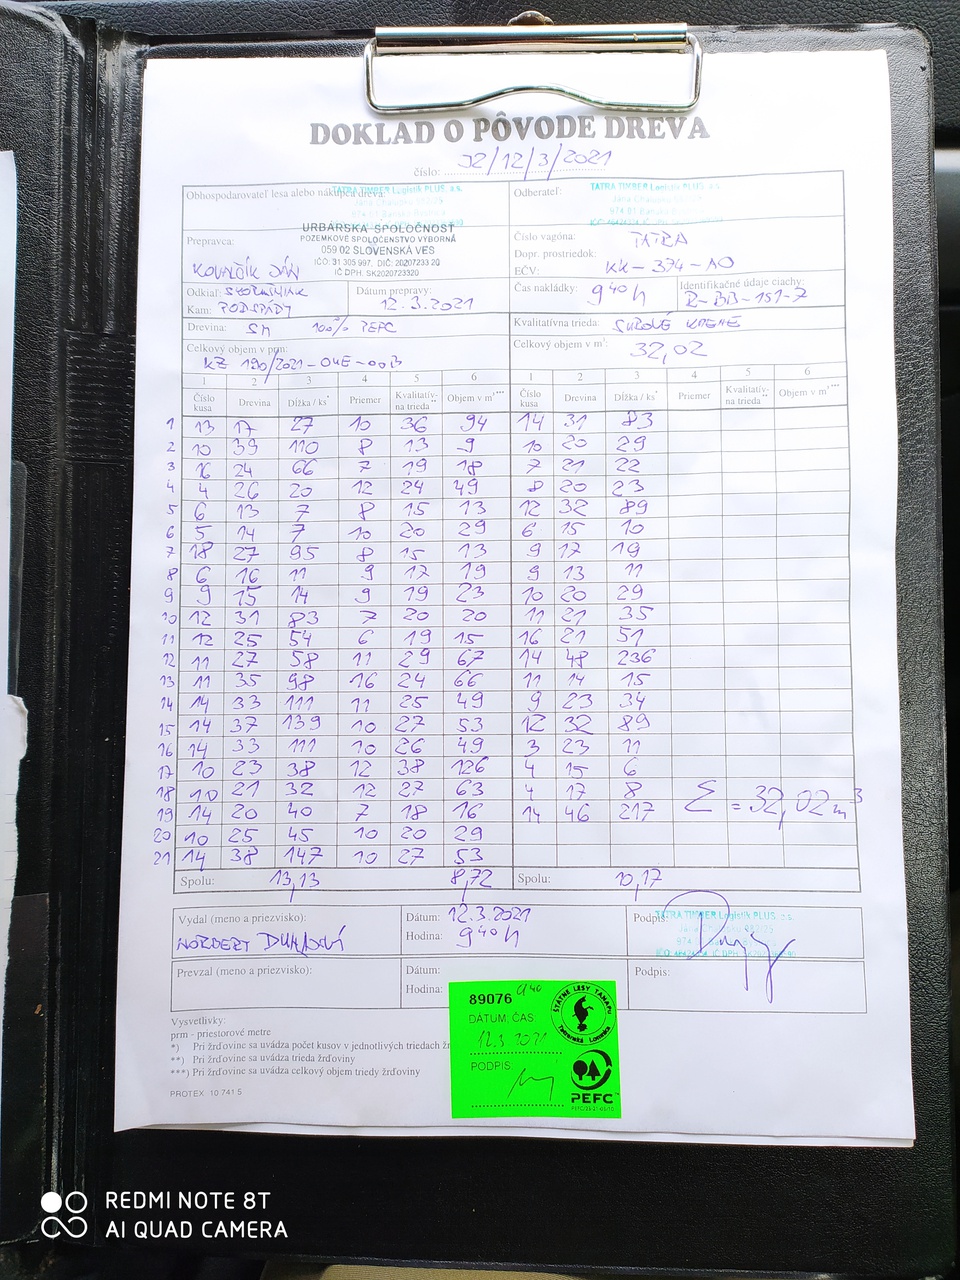 DOKLAD O PÔVODE DREVA
číslo: J2/12/3/2021
Obhospodarovateľ lesa alebo nákupca dreva:
TATRA TIMBER Logistik PLUS, a.s.
Odberateľ:
TATRA TIMBER Logistik PLUS, a.s.
URBÁRSKA SPOLOČNOSŤ
POZEMKOVÉ SPOLOČENSTVO VÝBORNÁ
059 02 SLOVENSKÁ VES
IČO: 31 305 997, DIČ: 2020723320
IČ DPH: SK2020723320
Prepravca:
KOVALČÍK JÁN
Číslo vagóna: TATRA
Dopr. prostriedok:
EČV: KK-374-AO
Odkiaľ:
Kam: PODSPÁDY
Dátum prepravy:
12.3.2021
Čas nakládky: 9 40 h
Identifikačné údaje ciachy:
R-BB-151-7
Drevina: SM 100% PEFC
Kvalitatívna trieda: SUROVÉ KMENE
Celkový objem v prm:
KZ 190/2021-04E-00B
Celkový objem v m³: 32,02
1 2 3 4 5 6 1 2 3 4 5 6
Číslo kusa Drevina Dĺžka / ks* Priemer Kvalitatív-na trieda** Objem v m³*** Číslo kusa Drevina Dĺžka / ks* Priemer Kvalitatív-na trieda** Objem v m³***
1 13 17 27 10 36 94 14 31 83
2 10 39 110 8 13 9 10 20 29
3 16 24 66 7 19 18 7 21 22
4 4 26 20 12 24 49 8 20 23
5 6 13 7 8 15 13 12 32 89
6 5 14 7 10 20 29 6 15 10
7 18 27 95 8 15 13 9 17 19
8 6 16 11 9 17 19 9 13 11
9 9 15 14 9 19 23 10 20 29
10 12 31 83 7 20 20 11 21 35
11 12 25 54 6 19 15 16 21 51
12 11 27 58 11 29 67 14 48 236
13 11 35 98 16 24 66 11 14 15
14 14 33 111 11 25 49 9 23 34
15 14 37 139 10 27 53 12 32 89
16 14 33 111 10 26 49 3 23 11
17 10 23 38 12 38 126 4 15 6
18 10 21 32 12 27 63 4 17 8
19 14 20 40 7 18 16 14 46 217
Σ = 32,02 m³
20 10 25 45 10 20 29
21 14 38 147 10 27 53
Spolu: 13,13 8,72 Spolu: 10,17
Vydal (meno a priezvisko):
NORBERT
Dátum: 12.3.2021
Hodina: 9 40 h
Podpis:
TATRA TIMBER Logistik PLUS, a.s.
Prevzal (meno a priezvisko):
Dátum:
Hodina:
Podpis:
Vysvetlivky:
prm - priestorové metre
*) Pri žrďovine sa uvádza počet kusov v jednotlivých triedach
**) Pri žrďovine sa uvádza trieda žrďoviny
***) Pri žrďovine sa uvádza celkový objem triedy žrďoviny
PROTEX 10 741 5
89076 9 40
DÁTUM, ČAS:
12.3.2021
PODPIS:
ŠTÁTNE LESY TANAPU
Tatranská Lomnica
PEFC
REDMI NOTE 8T
AI QUAD CAMERA